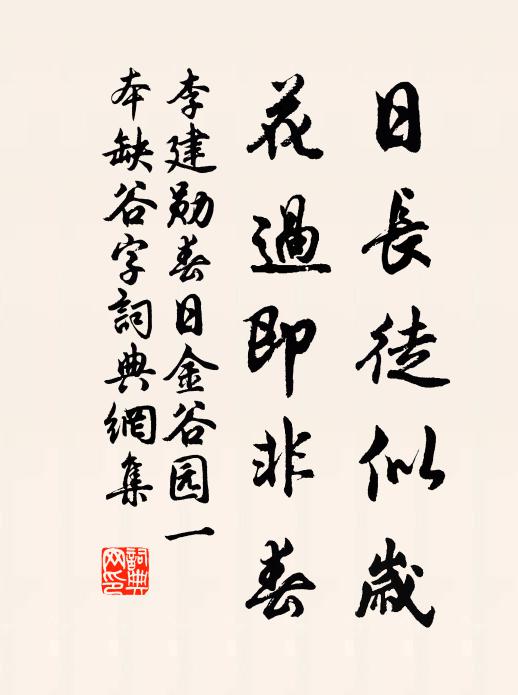 日長徒似歲
花過即非春
李建勋春日金谷园一
本缺谷字詞典網集
詞典
网印